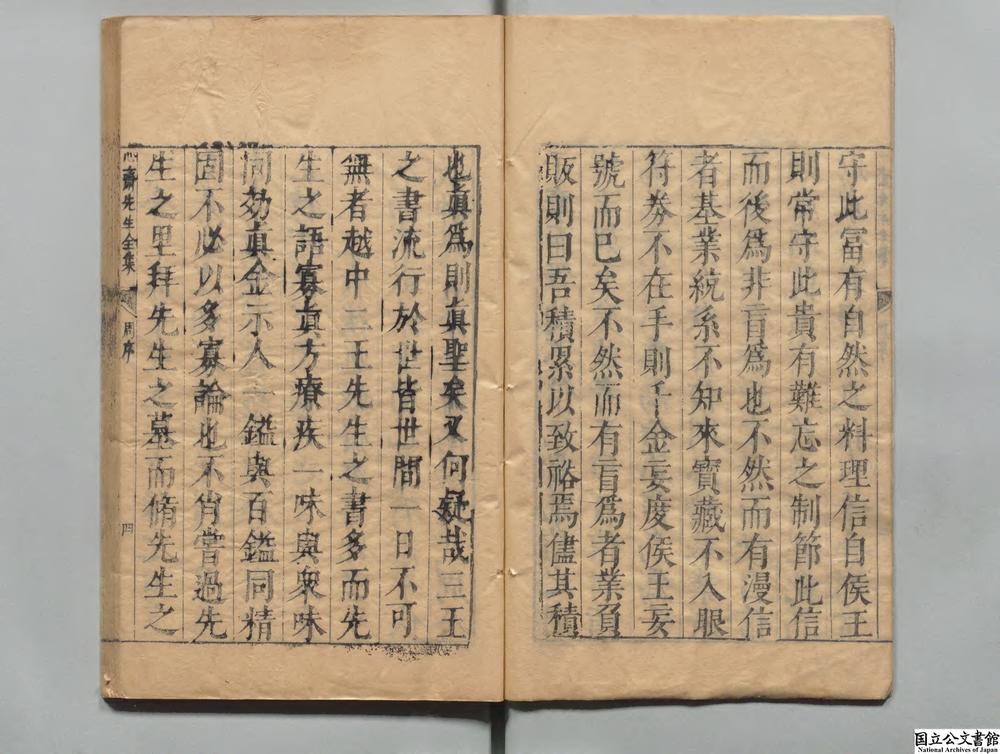 守此富有自然之料理信自侯王
則常守此貴有難忘之制節此信
而後爲非盲爲也不然而有漫信
者基業統系不知來寶藏不入眼
符券不在手則千金妄度侯王妄
號而已矣不然而有盲爲者業負
販則曰吾積累以致裕焉儘其積
也眞爲則眞聖矣又何疑哉三王
之書流行於世皆世間一日不可
無者越中二王先生之書多而先
生之語寡眞方療疾一味與衆味
同効眞金示人一鎰與百鎰同精
固不必以多寡論也不肖嘗過先
生之里拜先生之墓而脩先生之
心齋先生全集
周序
四
国立公文書館
National Archives of Japan